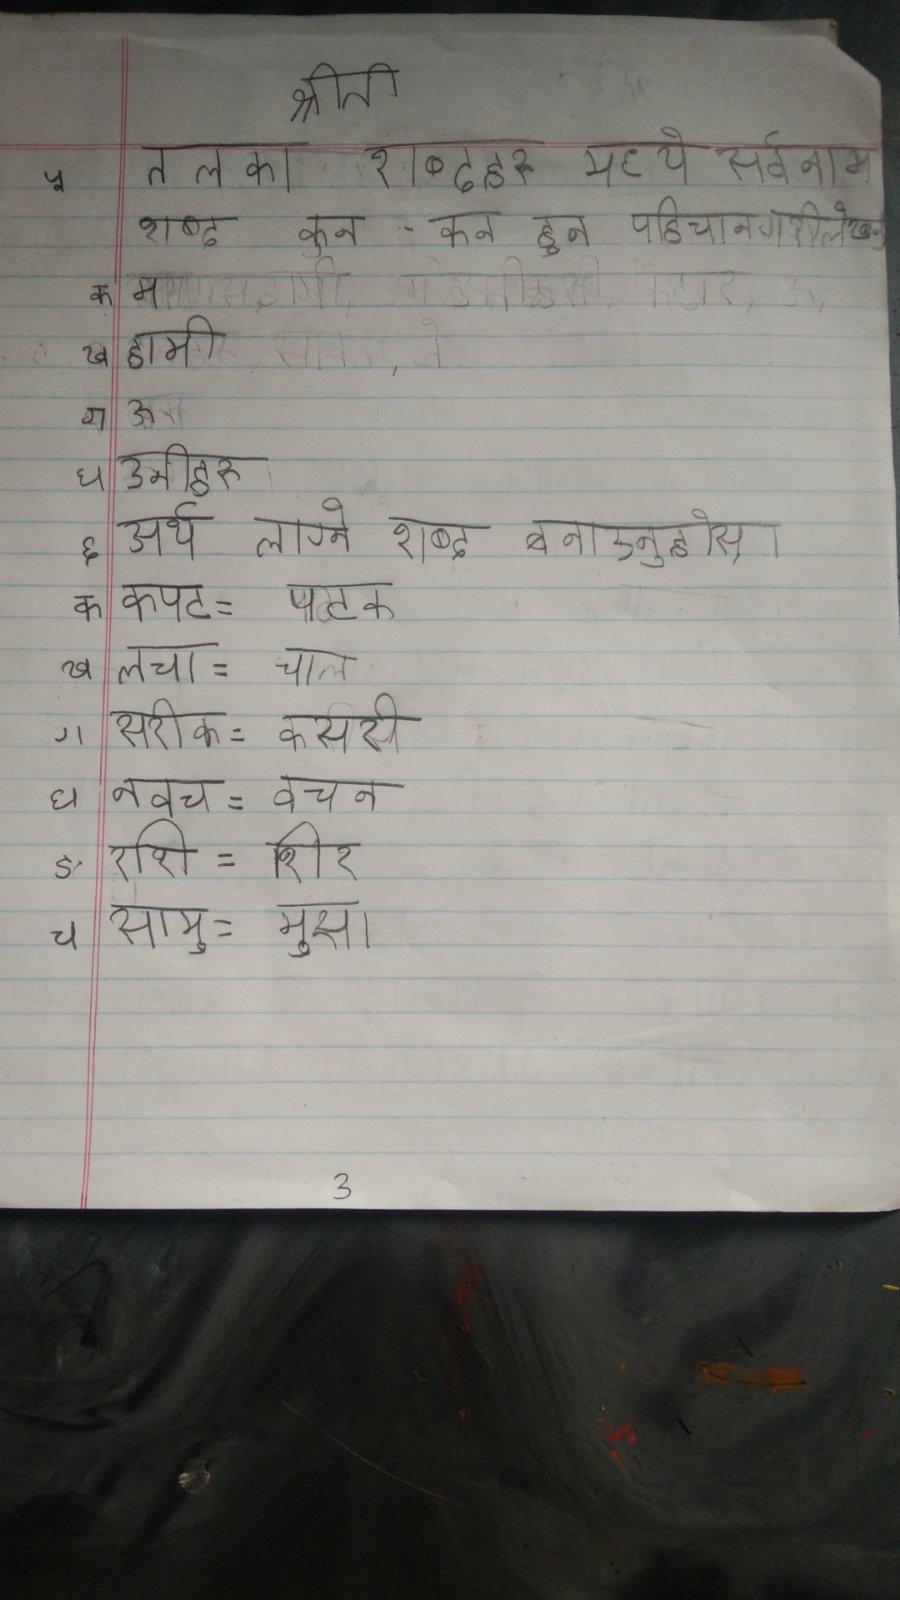 श्रीती
५ तलका शब्दहरु मध्ये सर्वनाम
शब्द कुन - कन हुन पहिचानगरीलेख्नु
क म
ख हामी
ग ऊ
घ उनीहरु
६ अर्थ लाग्ने शब्द बनाउनुहोस् ।
क कपट = पटक
ख लचा = चाल
ग सरीक = कसरी
घ नवच = वचन
ङ रशि = शिर
च सामु = मुसा
3